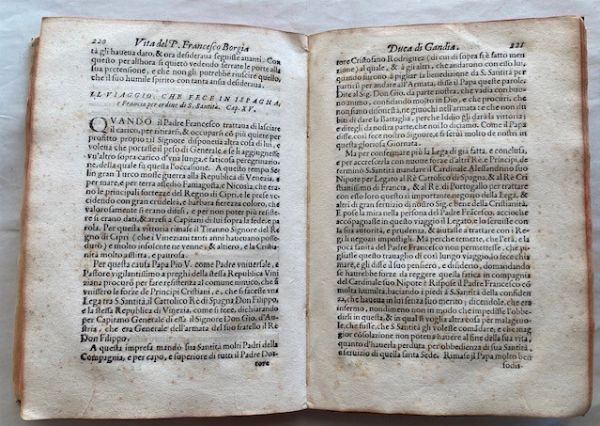 220 Vita del P. Francesco Borgia
tà gli haueua dato, & ora desideraua seguisse auanti. Con
questo per allhora si quietò vedendo serrare le porte alla
sua pretensione, e che non gli potrebbe riuscire quello,
che il suo humile spirito con tanta ansia desideraua.
IL VIAGGIO, CHE FECE IN ISPAGNA,
e Francia per ordine di S. Santità. Cap. XV.
QVANDO il Padre Francesco trattaua di lasciare
il carico, per ritirarsi, & occuparsi cō più quiete per
profitto proprio, il Signore disponeua altra cosa di lui, e
volendo che portasse il peso di Generale, e se li aggiungesse
vn'altro sopra carico d'vna lunga, e faticosa peregrinatio-
ne, della quale fù questa l'occasione. A questo tempo Se-
lin gran Turco mosse guerra alla Republica di Venetia, e
per mare, e per terra assediò Famagosta, e Nicosia, che era-
no le principali fortezze del Regno di Cipri, e le prese vc-
cidendo con gran crudeltà, e barbara fierezza coloro, che
valorosamente si erano difesi, e per non poter più resiste-
re si erano dati, & arresi a Capitani di lui sopra la fede, e pa
rola. Per questa vittoria rimase il Tiranno Signore del Re-
gno di Cipri (che i Veneziani tanti anni haueuano posse-
duto) e molto insolente ne venne, & altiero, e la Cristia-
nità molto afflitta, e paurosa.
Per questa causa Papa Pio V. come Padre vniuersale, e
Pastore vigilantissimo a preghi della stessa Republica Vini
ziana procurò per fare resistenza al comune nimico, che s'
vnissero le forze de Principi Cristiani, e, che si facesse vna
Lega tra S. Santità, il Cattolico Rè di Spagna Don Filippo,
e la stessa Republica di Venezia, come si fece, dichiarando
per Capitano Generale di essa il Signore Don Gio. d'Au-
stria, che era Generale dell'armata del suo fratello il Rè
Don Filippo.
A questa impresa mandò sua Santità molti Padri della
Compagnia, e per capo, e superiore di tutti il Padre Dot-
tore
Duca di Gandia. 221
tore Cristofano Rodriguez (di cui di sopra si è fatto men-
zione) al quale, & à gli altri, che andarono con esso lui,
quando furono à pigliar la benedizione da S. Santità per
partirsi per andare all'Armata, disse il Papa queste parole.
Dite al Sig. Don Gio. da parte nostra, che vadia con buo-
no animo, confidando molto in Dio, e che procuri, che
non siano disonestà, ne giuochi nell'armata: e che non du-
biti di dare la Battaglia, perche Iddio gli darà la vittoria;
e ditegli da nostra parte, che noi lo diciamo. Come il Papa
disse, così fece nostro Signore, e si vestì della sua mano in
quella gloriosa Giornata.
Ma per consegnare più la Lega di già fatta, e conclusa,
e per accrescerla con nuoue forze d'altri Rè, e Principi, de-
terminò S. Santità mandare il Cardinale Alessandrino suo
Nipote per Legato al Rè Cattolico di Spagna, & al Rè Cri
stianissimo di Francia, & al Rè di Portogallo per trattare
con esse loro questi negozi di importanza della Lega, &
altri di gran seruizio di nostro Sig. e bene della Cristianità.
E pose la mira nella persona del P. Francesco, acciochè ac-
compagnasse in questo viaggio il Legato, e lo seruisse con
la sua autorità, e prudenza, & aiutasse a trattare con i Re-
gi li negozi impostigli. Ma perche, che l'età, e la
poca sanità del Padre Francesco non permettesse, che pi-
gliasse questo trauaglio di così lungo viaggio, lo fece chia
mare, e gli disse il suo pensiero, e disiderio, domandando
se hauerebbe forze da reggere questa fatica in compagnia
del Cardinale suo Nipote? Rispose il Padre Francesco cō
molta humiltà, baciando i piedi à S. Santità della confiden-
za, che haueua in lui senza suo merito; dicendole, che era
infermo, nondimeno non in modo che impedisse l'obbe-
dirli in questa, & in qual si voglia altra cosa per malageuo-
le, che fusse, che S. Santità gli volesse comādare, e che mag-
gior cōsolazione non poteua hauere al fine della sua vita,
quanto d'hauerla perduta per obbedienza di sua Santità,
e seruizio di quella santa Sede. Rimase il Papa molto ben
sodis-